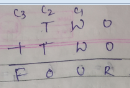 C3 C2 C1
T W O
+ T W O
F O U R